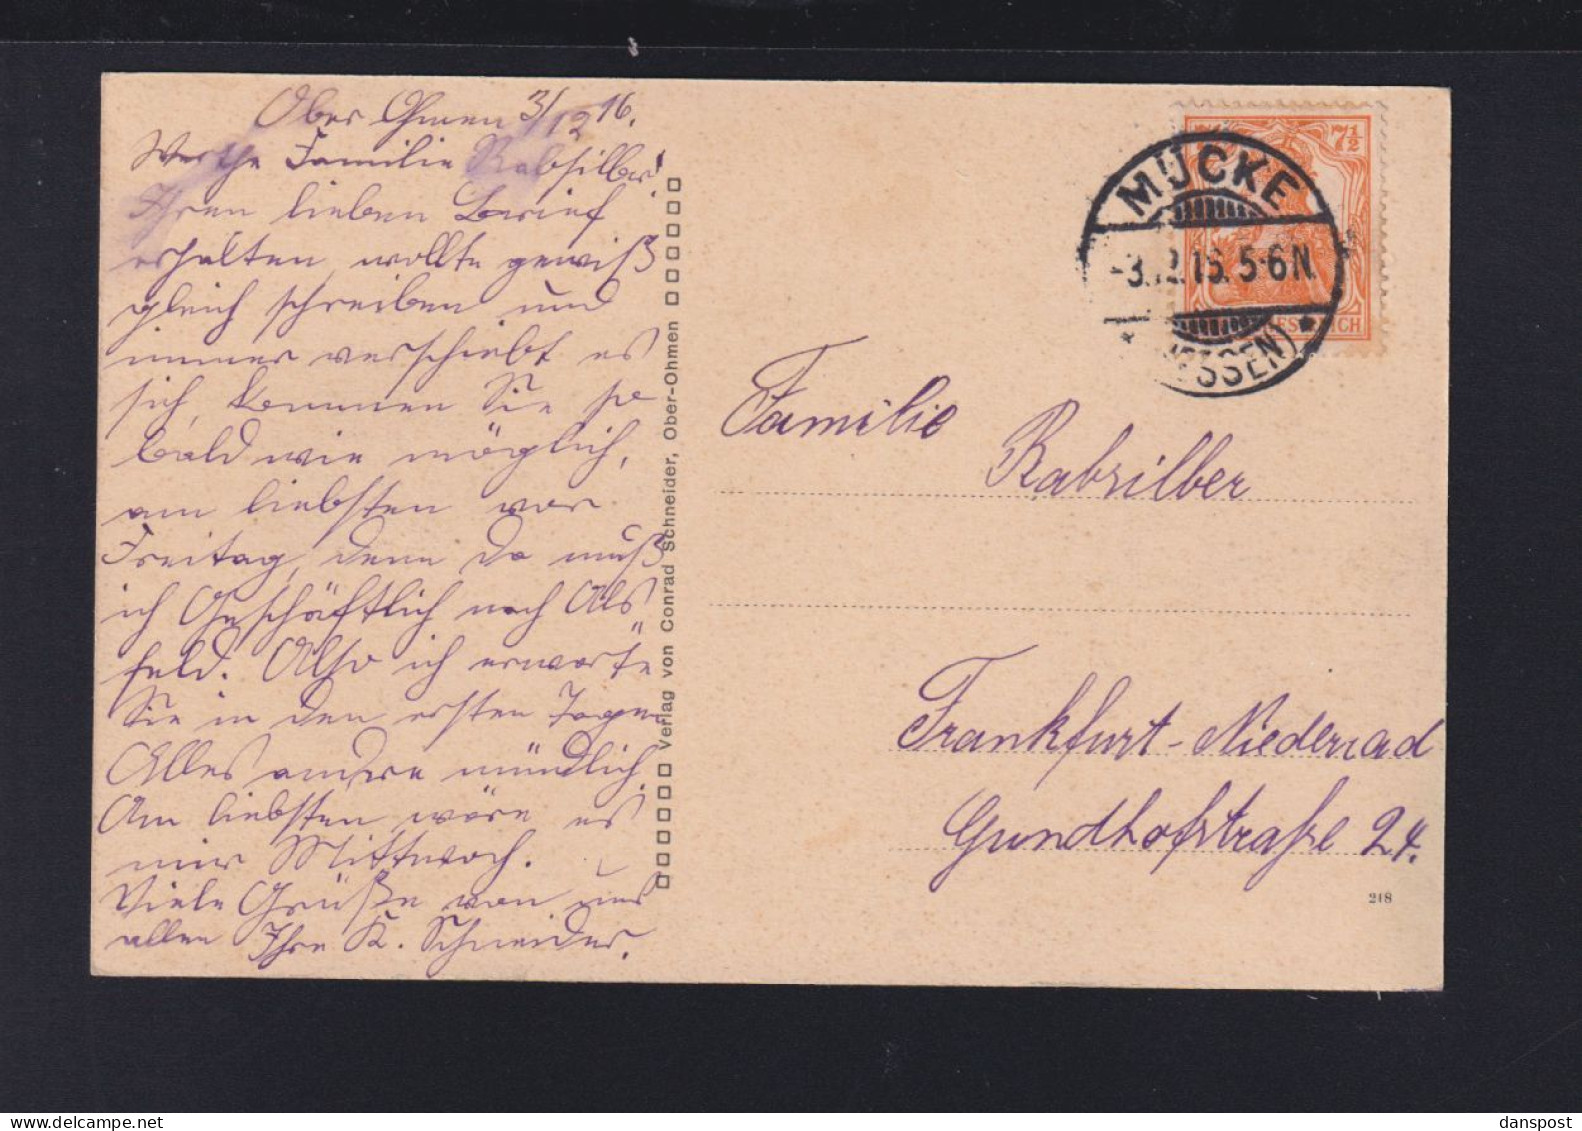 Ober Ohmen 3/12 16.
Werthe Familie Rabsilber!
Ihren lieben Brief
erhalten, wollte gewiß
gleich schreiben und
immer verschiebt es
sich, kommen Sie so
bald wie möglich,
am liebsten vor
Freitag, denn da muß
ich Geschäftlich nach Als„
feld. Also ich erwarte
Sie in den ersten Tagen
Alles andre mündlich.
Am liebsten wäre es
mir Mittwoch.
Viele Grüße von uns
allen Ihre K. Schneider.
Verlag von Conrad Schneider, Ober-Ohmen
MÜCKE
-3.12.16. 5-6N.
(HESSEN)
7½
Familie
Rabsilber
Frankfurt-Niederrad
Gundhofstraße 24.
218
danspost
www.delcampe.net